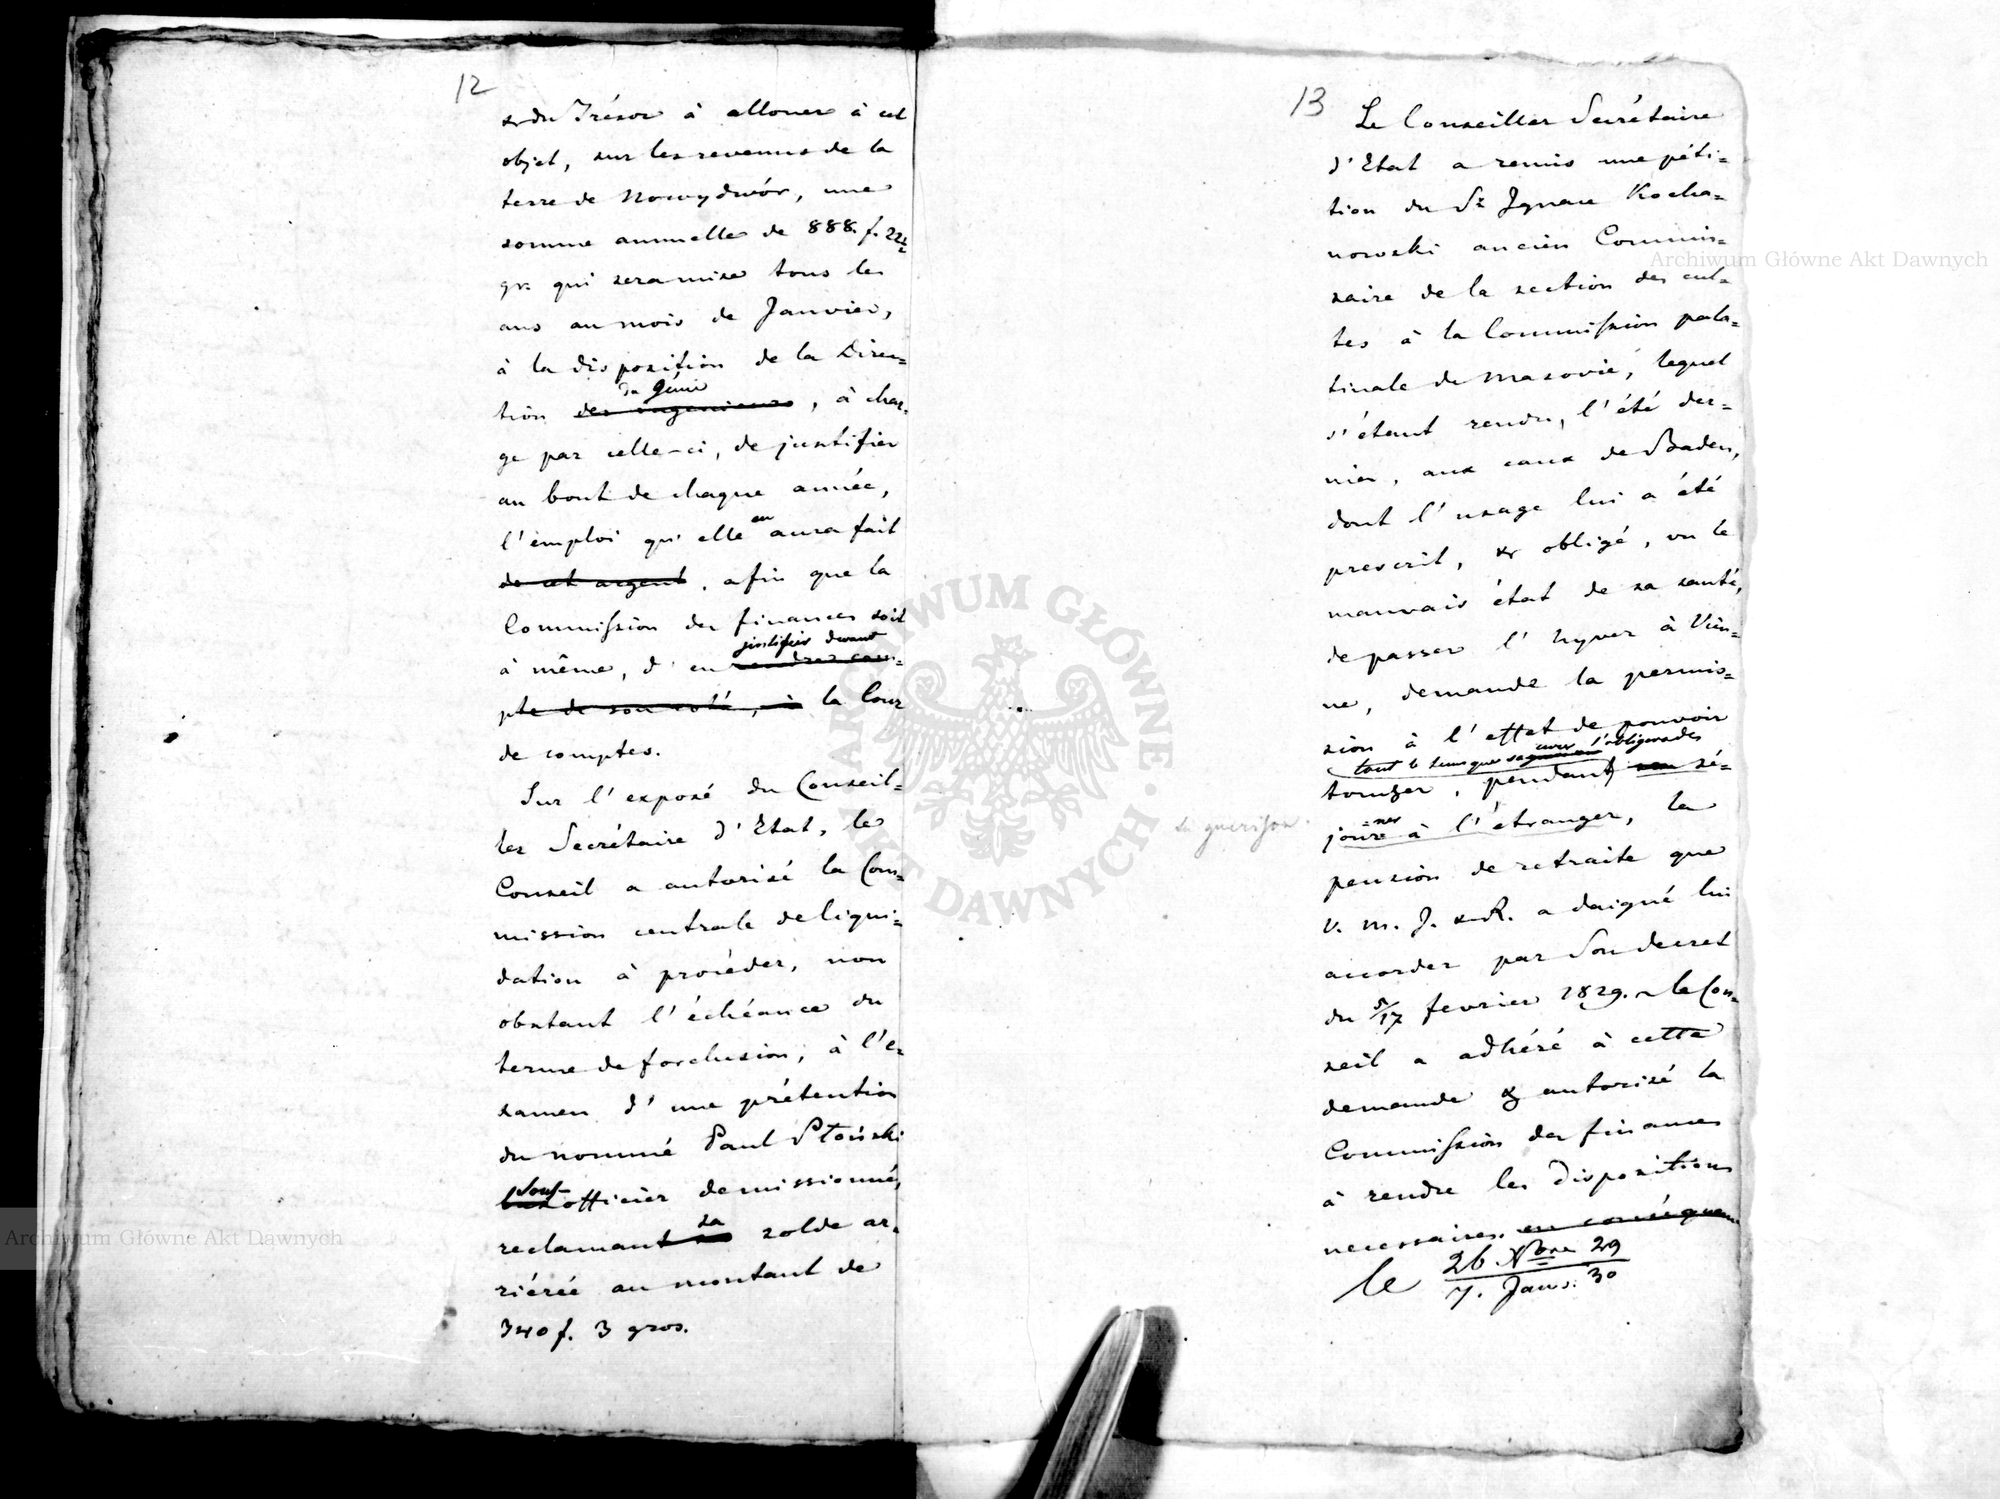 12
& du Trésor à allouer à cet
objet, sur les revenus de la
terre de Nowydwór, une
somme annuelle de 888. f. 22½
gr. qui sera mise tous les
ans au mois de Janvier,
à la disposition de la Direc=
du Génie
tion des ingenieurs, à char=
ge par celle-ci, de justifier
au bout de chaque année,
l'emploi qu'elle en aura fait
de cet argent, afin que la
Commission des finances soit
justifier devant
à même, d'en rendre com=
pte de son coté, à la Cour
de comptes.
Sur l'exposé du Conseil=
ler Secrétaire d'Etat, le
Conseil a autorisé la Com=
mission centrale de liqui=
dation à procéder, non
obstant l'échéance du
terme de forclusion, à l'e=
xamen d'une prétention
du nommé Paul Płoński
Sous-
bas officier demissionné,
reclamant sa solde ar=
riérée au montant de
340 f. 3 gros.
13
Le Conseiller Secrétaire
d'Etat a remis une péti=
tion du Sr. Ignace Kocha=
nowski ancien Commis=
saire de la section des cul=
tes à la Commission pala=
tinale de Masovie, lequel
s'étant rendu, l'été der=
nier, aux eaux de Baden,
dont l'usage lui a été
prescrit, & obligé, vu le
mauvais état de sa santé,
de passer l'hyver à Vien=
ne, demande la permis=
sion à l'effet de pouvoir
tout le tems que sa cure l'obligera de
toucher, pendant son sé=
sa guerison.
journer à l'étranger, la
pension de retraite que
V. M. J. & R. a daigné lui
accorder par Son decret
du 5/17 fevrier 1829. ~ le Con=
seil a adhéré à cette
demande & autorisé la
Commission des finances
à rendre les dispositions
necessaires. en conséquen
le 26 Nbre 29
7. Janv. 30
Archiwum Główne Akt Dawnych
Archiwum Główne Akt Dawnych
ARCHIWUM GŁÓWNE AKT DAWNYCH